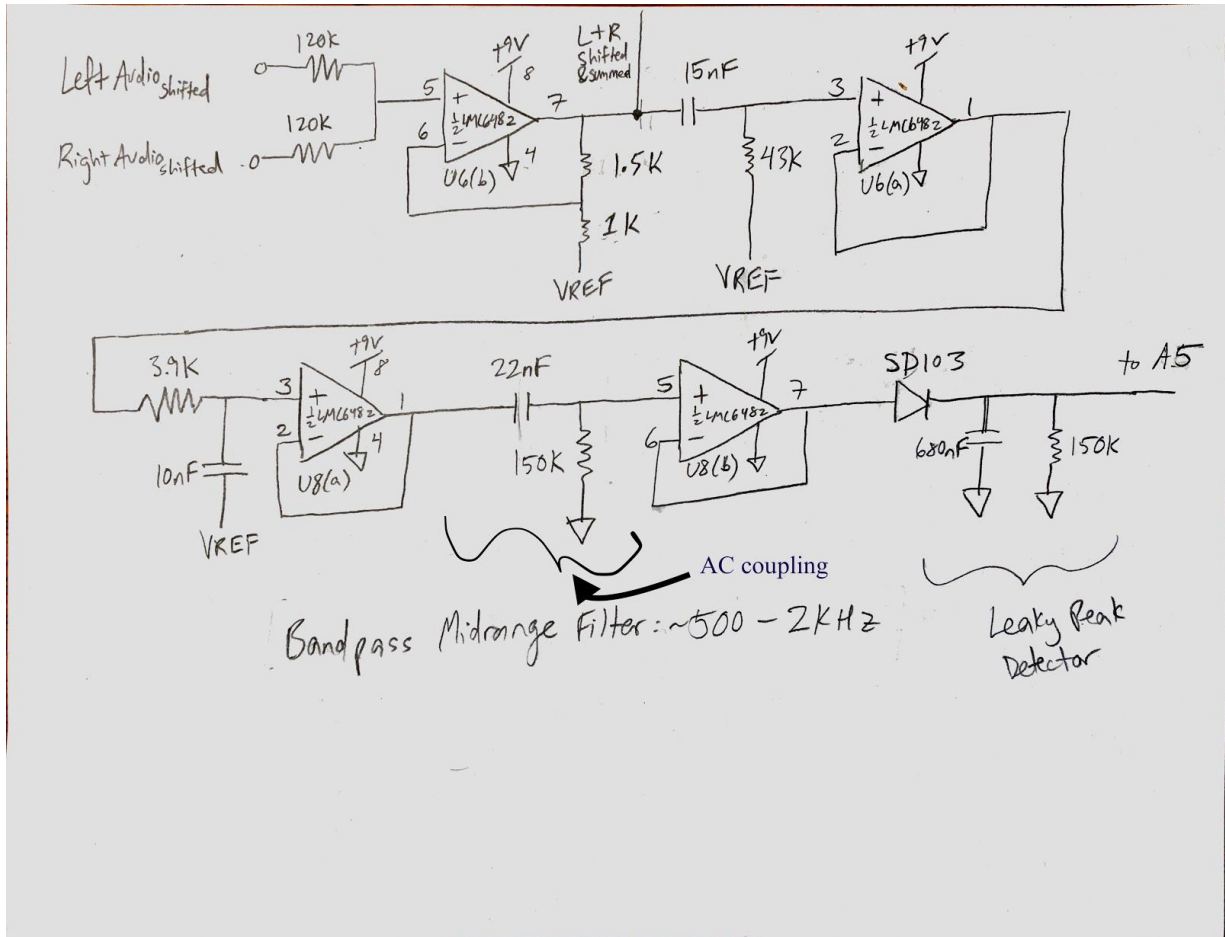 120K
Left Audio shifted
120K
Right Audio shifted
5
6
+
1/2 LMC6482
-
+9V
8
7
4
U6(b)
L+R
shifted
& summed
1.5K
1K
VREF
15nF
43K
VREF
3
2
+
1/2 LMC6482
-
+9V
1
U6(a)
3.9K
10nF
VREF
3
2
+
1/2 LMC6482
-
+9V
8
1
4
U8(a)
22nF
150K
5
6
+
1/2 LMC6482
-
+9V
7
U8(b)
SD103
to A5
680nF
150K
AC coupling
Bandpass Midrange Filter: ~500 - 2KHz
Leaky Peak
Detector